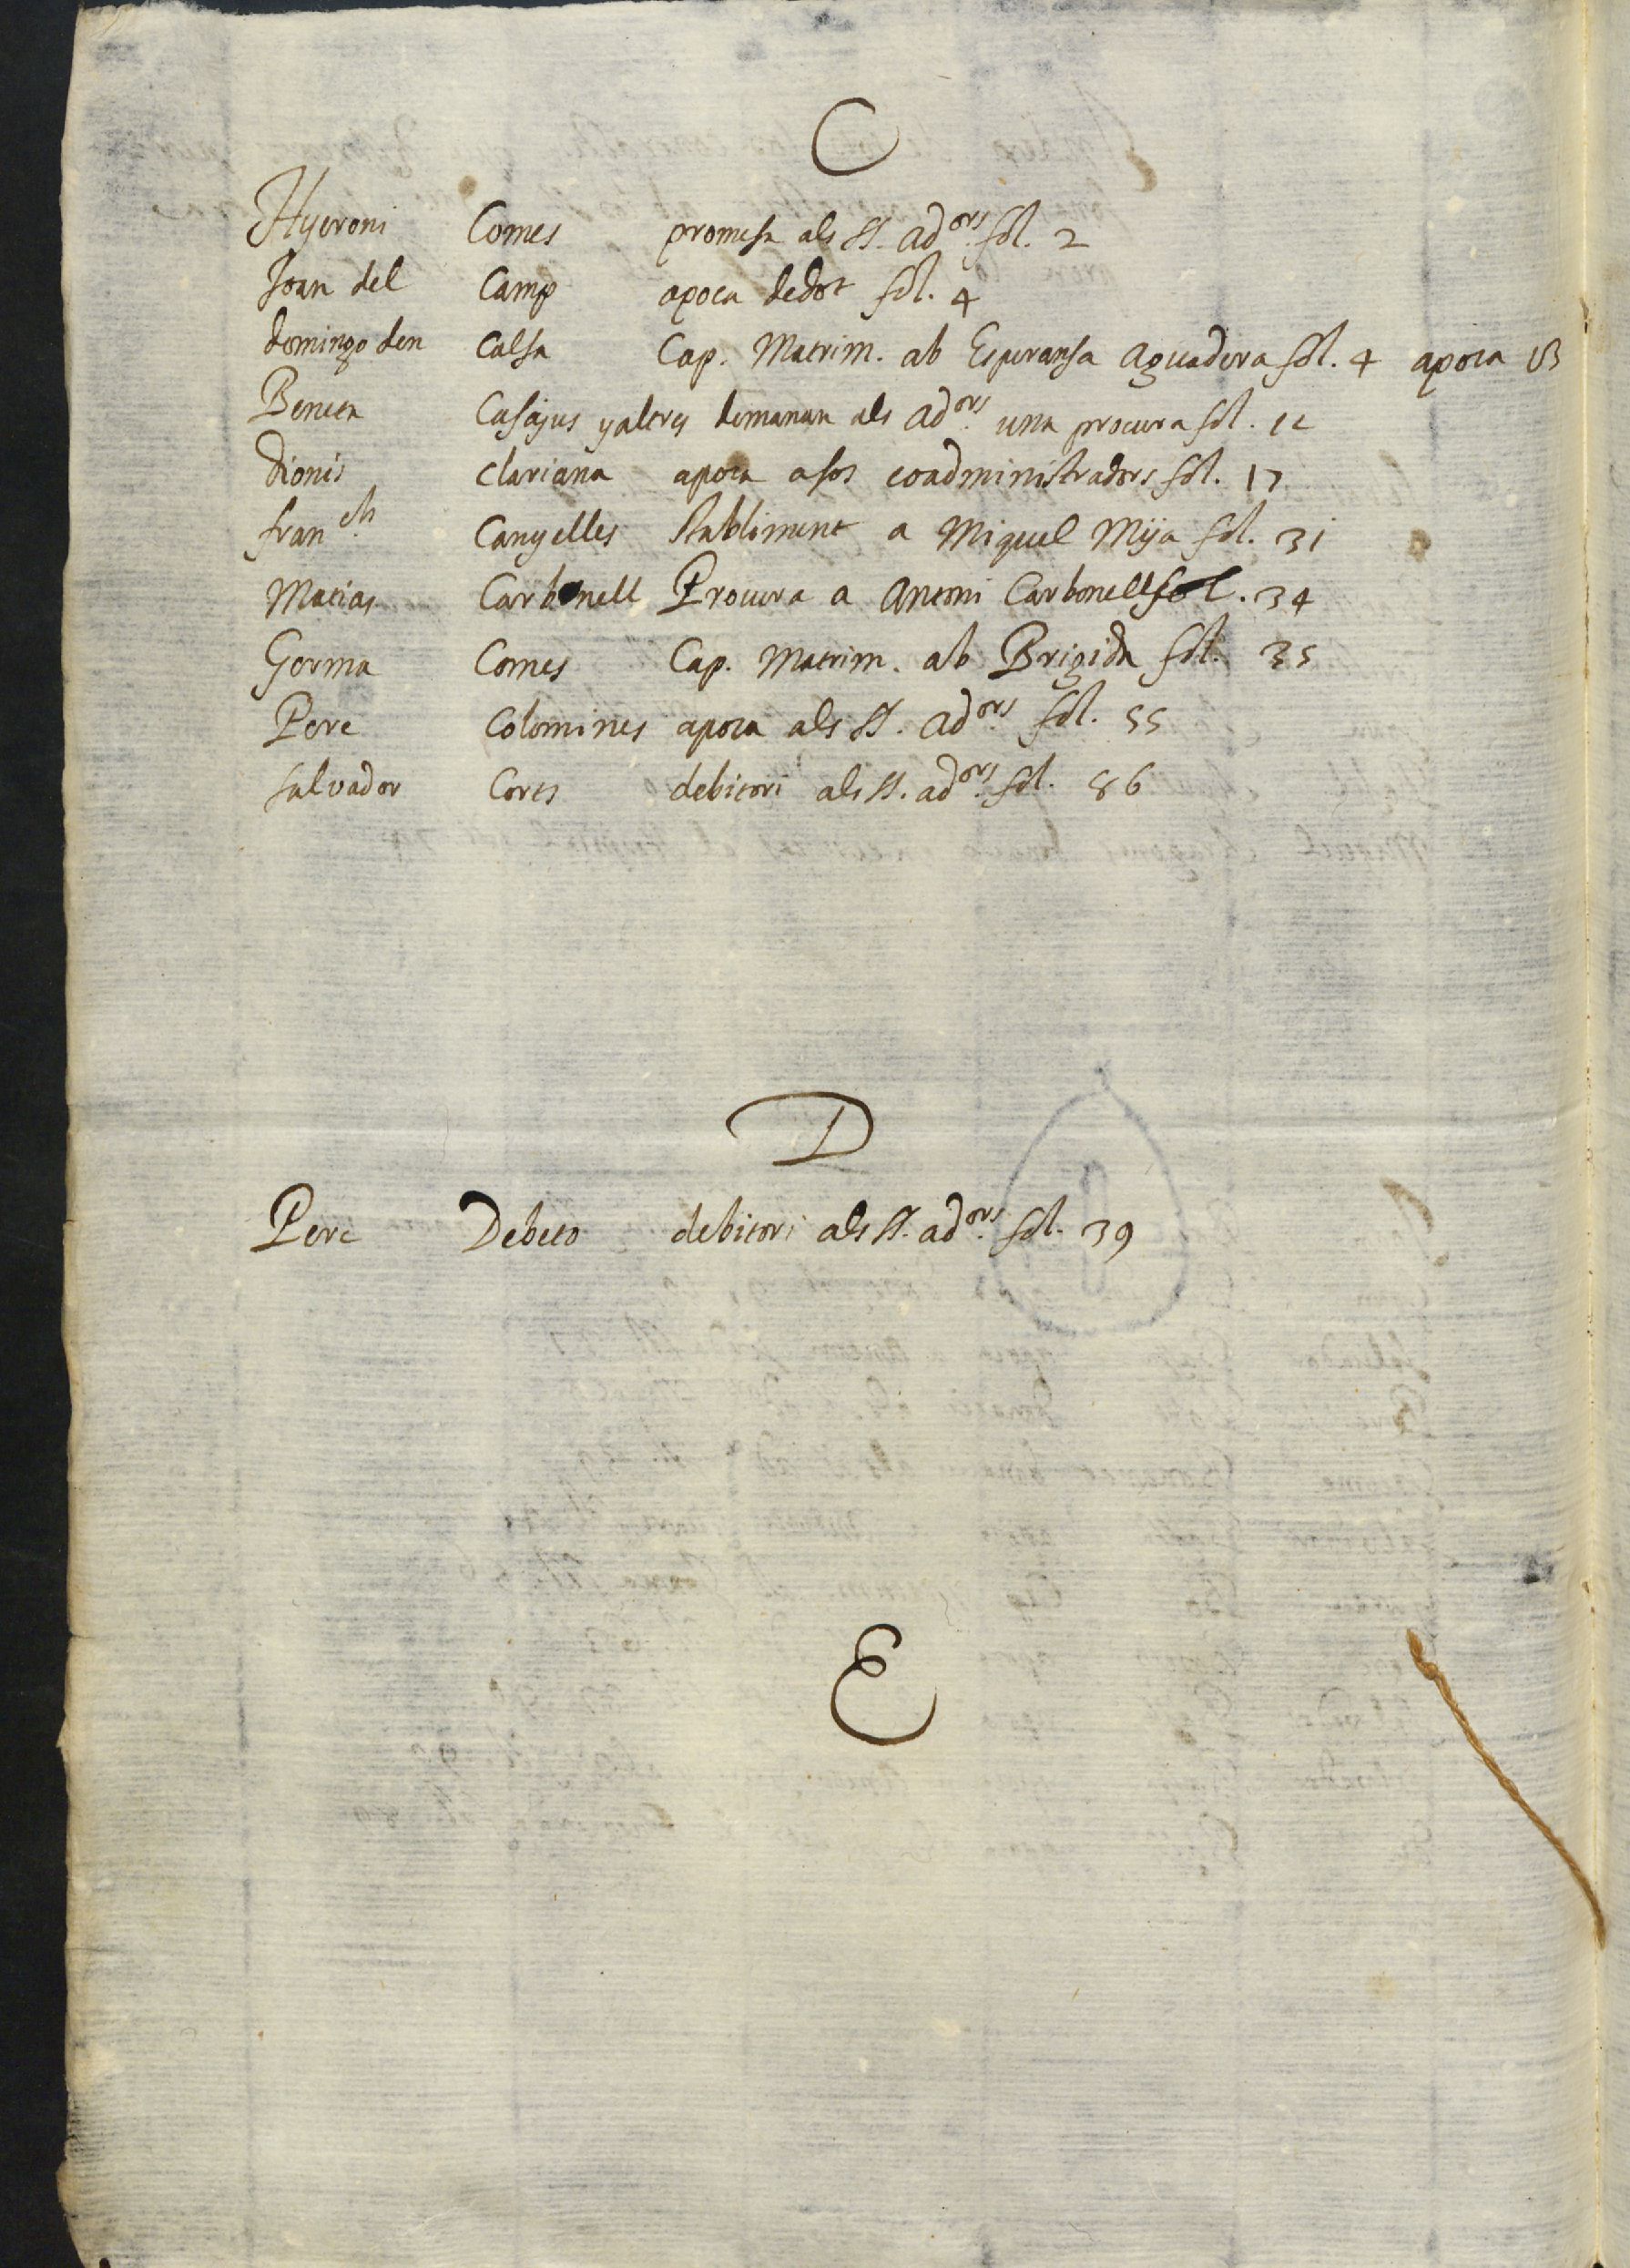 C
Hyeroni Comes promesa als SS. adors. fol. 2
Joan del Camp apoca dedot fol. 4
domingo den Calsa Cap. Matrim. ab Esperansa Aguadera fol. 4 apoca
Beneta Casajus y altres demanan als adors. una procura fol. 12
dionis Clariana apoca a sos coadministradors fol. 17
franch. Canyelles stabliment a Miquel Mija fol. 31
Matias Carbonell Procura a Antoni Carbonell fol. 34
Germa Comes Cap. Matrim. ab Brigida fol. 35
Pere Colomines apoca als SS. adors. fol. 55
salvador Cortes debitori als SS. adors. fol. 86
D
Pere Debeto debitori als SS. adors. fol. 39
E